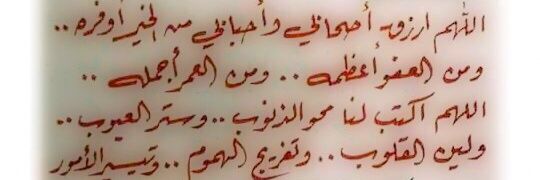 اللهم ارزق أصحابي وأحبابي من الخير أوفره ..
ومن العفو أعظمه .. ومن العمر أجمله ..
اللهم اكتب لنا محو الذنوب .. وستر العيوب ..
ولين القلوب .. وتفريج الهموم .. وتيسير الأمور